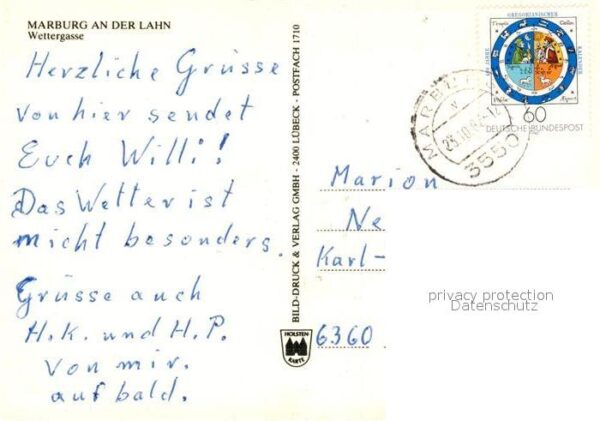 MARBURG AN DER LAHN
Wettergasse
Herzliche Grüsse
von hier sendet
Euch Willi!
Das Wetter ist
nicht besonders.
Grüsse auch
H.K. und H.P.
von mir.
auf bald.
BILD-DRUCK & VERLAG GMBH - 2400 LÜBECK - POSTFACH 1710
HOLSTEN
KARTE
GREGORIANISCHER
KALENDER
60
DEUTSCHE BUNDESPOST
MARBU
3550
Marion
Ne
Karl-
6360
privacy protection
Datenschutz